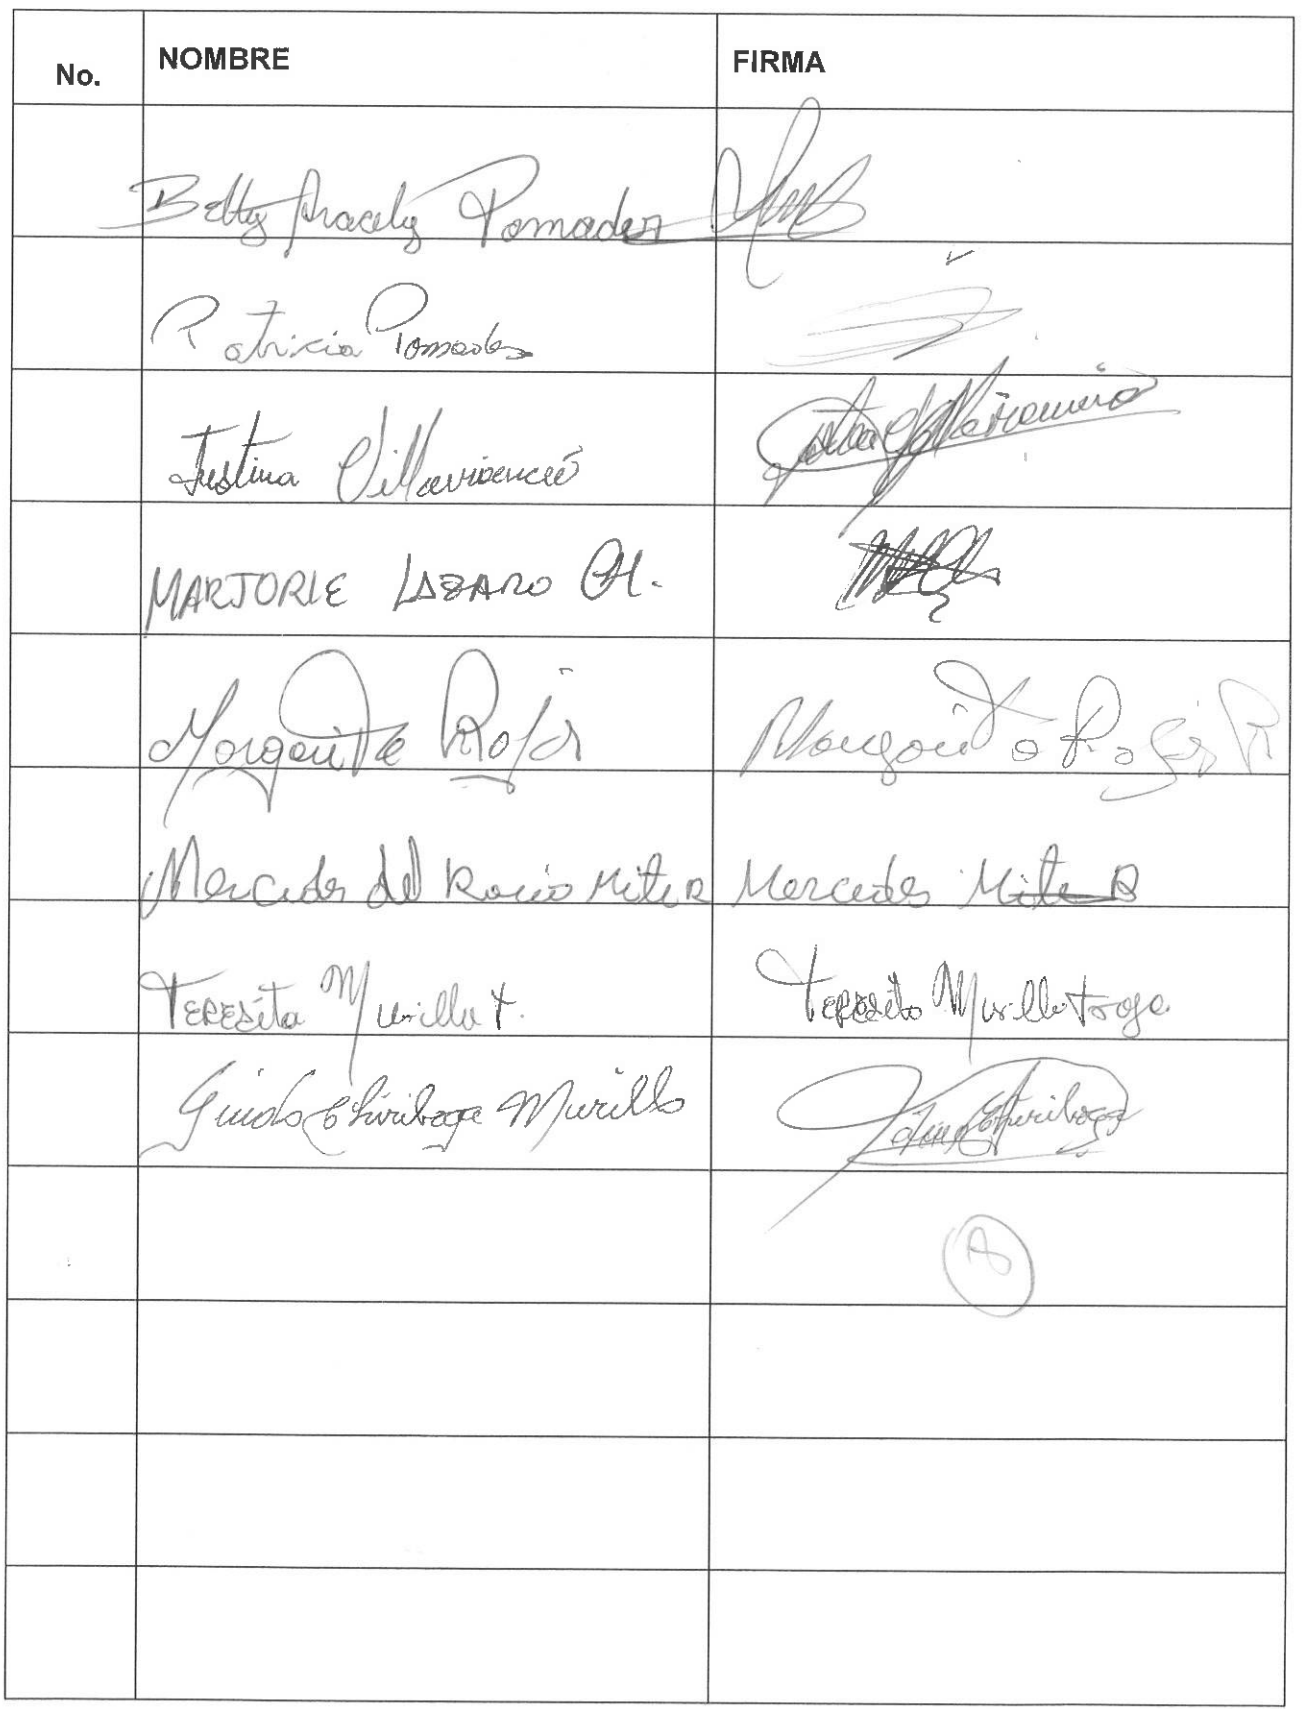 No. NOMBRE FIRMA
Betty Aracely
Patricia
Justina Villavicencio
MARJORIE LAZARO CH.
Margarita Rojas Margarita Rojas R
Mercedes del Rocio Mite R Mercedes Mite R
TERESita Murillo t. TERESita Murillo troya
Guido Chiriboga Murillo Chiriboga